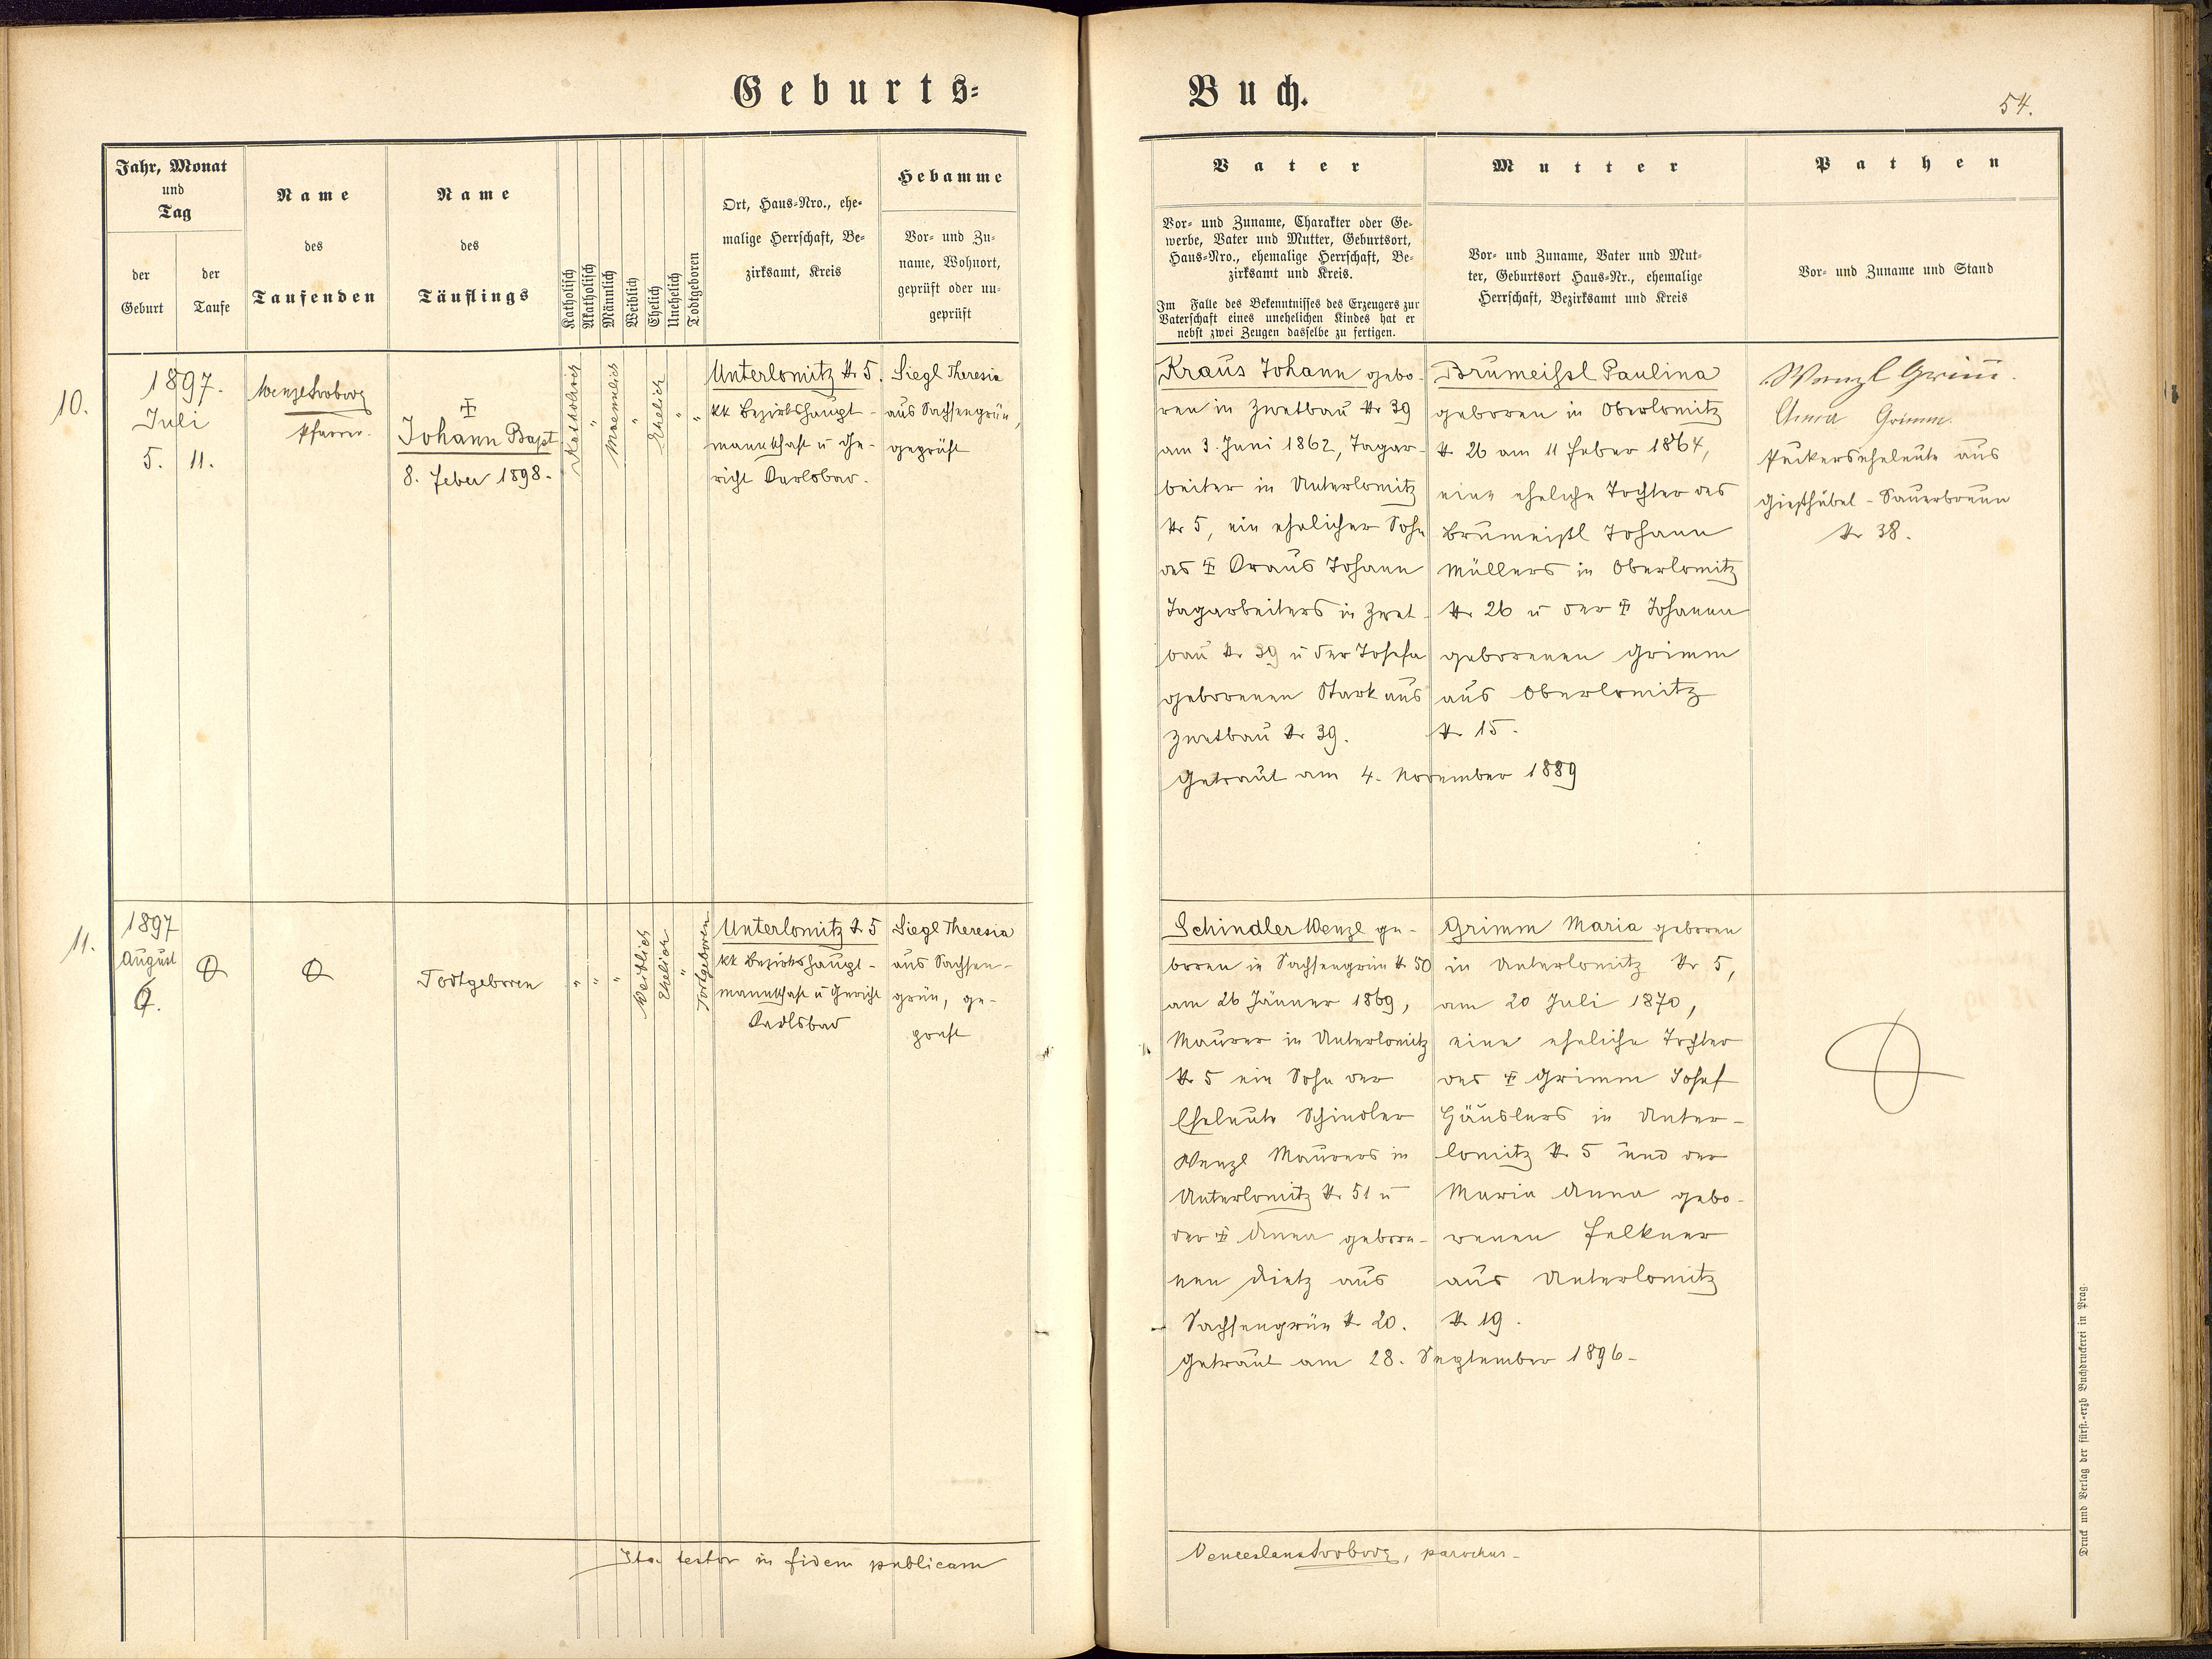 Geburts=
Buch.
54.
Jahr, Monat
und
Tag
der
Geburt
der
Taufe
Name
des
Taufenden
Name
des
Täuflings
Katholisch
Akatholisch
Männlich
Weiblich
Ehelich
Unehelich
Todtgeboren
Ort, Haus=Nro., ehe=
malige Herrschaft, Be=
zirksamt, Kreis
Hebamme
Vor= und Zu=
name, Wohnort,
geprüft oder un=
geprüft
Vater
Vor= und Zuname, Charakter oder Ge=
werbe, Vater und Mutter, Geburtsort,
Haus=Nro., ehemalige Herrschaft, Be=
zirksamt und Kreis.
Im Falle des Bekenntnisses des Erzeugers zur
Vaterschaft eines unehelichen Kindes hat er
nebst zwei Zeugen dasselbe zu fertigen.
Mutter
Vor= und Zuname, Vater und Mut=
ter, Geburtsort Haus=Nr., ehemalige
Herrschaft, Bezirksamt und Kreis
Pathen
Vor= und Zuname und Stand
10.
1897.
Juli
5. 11.
Wenzl Svoboda
Pfarrer.
Johann Bapt
8. Feber 1898.
Katholisch
"
Maennlich
"
Ehelich
"
"
Unterlomitz Nr 5.
kk Bezirkshaupt-
mannschaft u Ge-
richt Karlsbad.
Siegl Theresia
aus Sachsengrün,
geprüft
Kraus Johann gebo-
ren in Zwetbau Nr 39
am 3. Juni 1862, Tagar-
beiter in Unterlomitz
Nr 5, ein ehelicher Sohn
des ‡ Kraus Johann
Tagarbeiters in Zwet-
bau Nr 39 u der Josefa
geborenen Stark aus
Zwetbau Nr 39.
Brumeißl Paulina
geboren in Oberlomitz
Nr 26 am 11 Feber 1864,
eine eheliche Tochter des
Brumeißl Johann
Müllers in Oberlomitz
Nr 26 u der ‡ Johanna
geborenen Grimm
aus Oberlomitz
Nr 15.
Getraut am 4. November 1889
Wenzl Grim̄.
Anna Grimm.
Päckerseheleute aus
Gießhübel-Sauerbrunn
Nr 38.
11.
1897
August
6.
Todtgeboren
"
"
"
Weiblich
Ehelich
"
Todtgeboren
Unterlomitz Nr 5
kk Bezirkshaupt-
mannschaft u Gericht
Karlsbad
Siegl Theresia
aus Sachsen-
grün, ge-
prüft
Schindler Wenzl ge-
boren in Sachsengrün Nr 50
am 26 Jänner 1869,
Maurer in Unterlomitz
Nr 5 ein Sohn der
Eheleute Schindler
Wenzl Maurers in
Unterlomitz Nr 51 u
der ‡ Anna gebore-
nen Dietz aus
Sachsengrün Nr 20.
Grimm Maria geboren
in Unterlomitz Nr 5,
am 20 Juli 1870,
eine eheliche Tochter
des ‡ Grimm Josef
Häuslers in Unter-
lomitz Nr 5 und der
Maria Anna gebo-
renen Felkner
aus Unterlomitz
Nr 19.
Getraut am 28. September 1896-
Ita testor in fidem publicam
Venceslaus Svoboda, parochus-
Druck und Verlag der fürst.=erzb Buchdruckerei in Prag